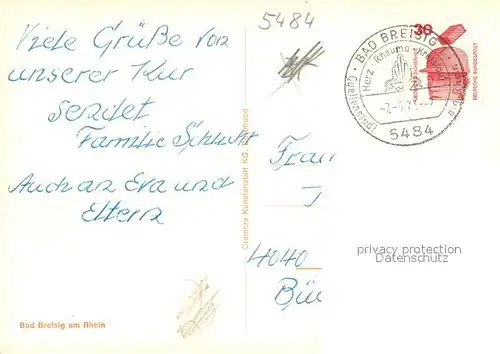 5484
Viele Grüße von
unserer Kur
sendet
Familie Schlicht
Auch an Eva und
Eltern
Bad Breisig am Rhein
Cramers Kunstanstalt KG, Dortmund
30
DEUTSCHE BUNDESPOST
BAD BREISIG
Herz - Rheuma
5484
Frau
4040
privacy protection
Datenschutz